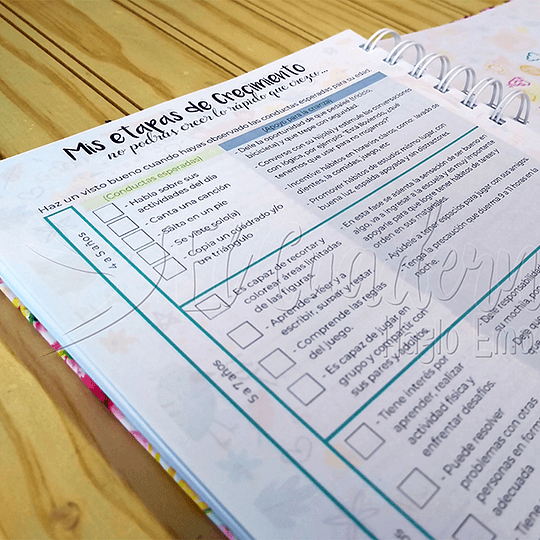 Mis etapas de Crecimiento
no podrás creer lo rápido que crezco...
Haz un visto bueno cuando hayas observado las conductas esperadas para su edad.
(Conductas esperadas)
(Apoyo para la crianza)
4 a 5 años
- Habla sobre sus
actividades del día
- Canta una canción
- Salta en un pie
- Se viste solo(a)
- Copia un cuadrado y/o
un triángulo
- Dele la oportunidad de que pedalee (triciclo,
bicicleta) y que trepe con seguridad.
- Converse con su hijo(a) y estimule las conversaciones
con lógica, por ejemplo, "Está lloviendo, ¿qué
tenemos que usar para no mojarnos?"
- Incentive hábitos en horarios claros, como: lavado de
dientes, la comida, juego, etc.
- Promover hábitos de estudio mismo lugar con
buena luz, sin distractores y en horario determinado.
5 a 7 años
- Es capaz de recortar y
colorear áreas limitadas
de las figuras
- Aprende a leer y a
escribir, sumar y restar.
- Comprende las reglas
del juego.
- Es capaz de jugar en
grupo y compartir con
sus pares y adultos.
- En esta fase se asienta la sensación de ser bueno en
algo, va a ingresar a la escuela y es muy importante
apoyarle para que logre tener hábitos de tareas y
orden en sus materiales.
- Ayúdele a tener espacios para jugar con los amigos.
- Tenga la precaución que duerma 9 a 11 horas en la
noche.
- Tiene interés por
aprender, realizar
actividad física y
enfrentar desafíos.
- Puede resolver
problemas con otras
personas en forma
adecuada
- Dele responsabilidad
su mochila,
Dele
Que